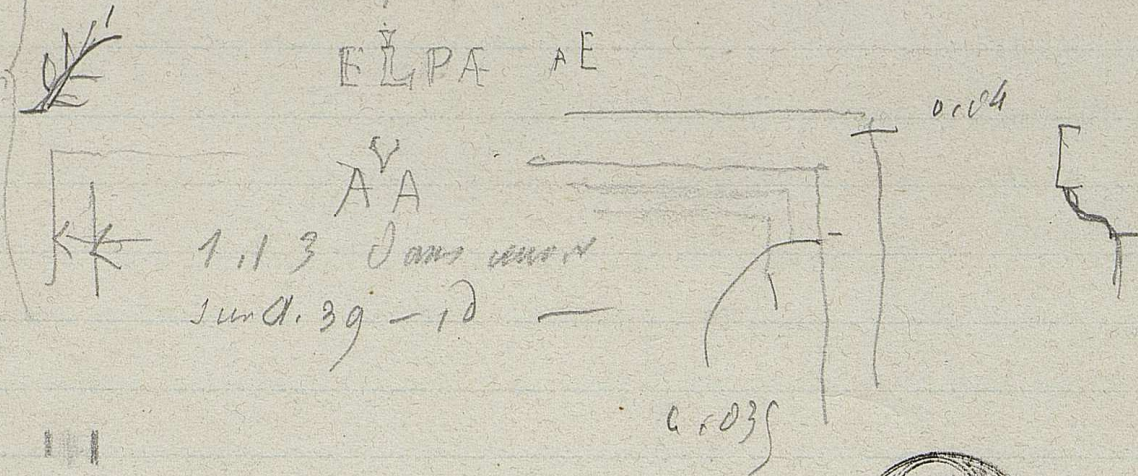 ELPA AE
0,04
A V A
1,13 dans œuvre
sur 0.39 — id —
0,035